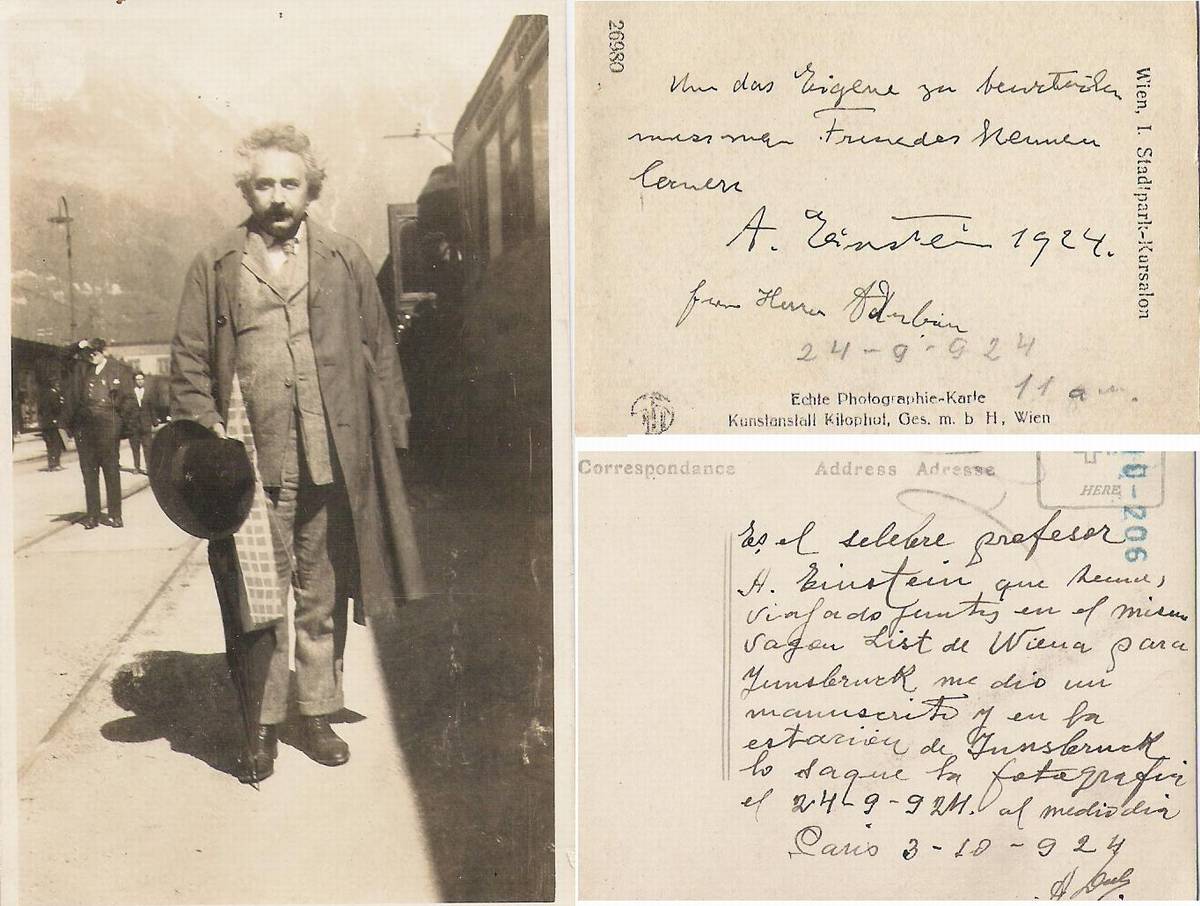 26980
Um das Eigene zu beurteilen
muss man Fremdes kennen
lernen
A. Einstein 1924.
Herrn
24-9-924
11 am.
Wien, I. Stadtpark-Kursalon
Echte Photographie-Karte
Kunstanstalt Kilophot, Ges. m. b H, Wien
Correspondance Address Adresse
HERE
-206
Es el selebre profesor
A. Einstein que hemos
viajado juntos en el mismo
vagon List de Wiena para
Junsbruck me dio un
manuscrito y en la
estacion de Junsbruck
lo saque la fotografia
el 24-9-924. al mediodia
Paris 3-10-924